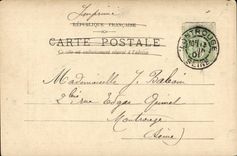 Imprimé
RÉPUBLIQUE FRANÇAISE
CARTE POSTALE
Ce côté est exclusivement réservé à l'adresse
MONTROUGE
SEINE
Mademoiselle J.
2 bis rue Edgar Quinet
Montrouge
(Seine)